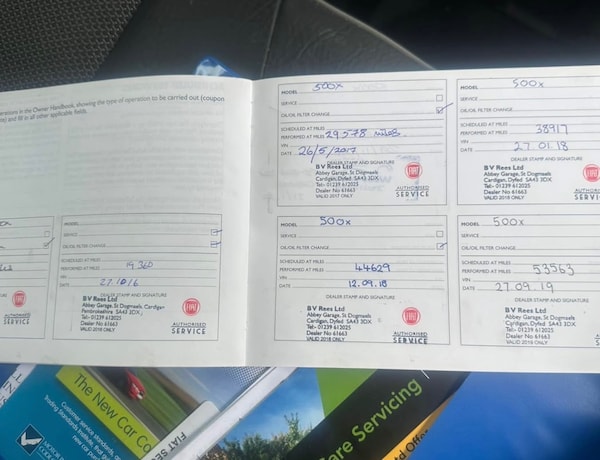 operations in the Owner Handbook, showing the type of operation to be carried out (coupon
and fill in all other applicable fields.
SERVICE
OIL/OIL FILTER CHANGE
SCHEDULED AT MILES
PERFORMED AT MILES 19 360
VIN
DATE 27 10/6
DEALER STAMP AND SIGNATURE
BV Rees Ltd
Abbey Garage, St Dogmaels, Cardigan
Pembrokeshire SA43 3DX
Tel:- 01239 612025
Dealer No 61663
VALID 2016 ONLY
FIAT
AUTHORISED
SERVICE
MODEL 500x
SERVICE
OIL/OIL FILTER CHANGE
SCHEDULED AT MILES
PERFORMED AT MILES 29,578 MILES
VIN
DATE 26/5/2017
DEALER STAMP AND SIGNATURE
BV Rees Ltd
Abbey Garage, St Dogmaels
Cardigan, Dyfed. SA43 3DX
Tel:- 01239 612025
Dealer No 61663
VALID 2017 ONLY
FIAT
AUTHORISED
SERVICE
MODEL 500x
SERVICE
OIL/OIL FILTER CHANGE
SCHEDULED AT MILES
PERFORMED AT MILES 38917
VIN
DATE 27.01.18
DEALER STAMP AND SIGNATURE
BV Rees Ltd
Abbey Garage, St Dogmaels
Cardigan, Dyfed. SA43 3DX
Tel:- 01239 612025
Dealer No 61663
VALID 2018 ONLY
AUTHORISED
SERVICE
MODEL 500x
SERVICE
OIL/OIL FILTER CHANGE
SCHEDULED AT MILES
PERFORMED AT MILES 44629
VIN
DATE 12.09.18
DEALER STAMP AND SIGNATURE
BV Rees Ltd
Abbey Garage, St Dogmaels
Cardigan, Dyfed. SA43 3DX
Tel:- 01239 612025
Dealer No 61663
VALID 2018 ONLY
FIAT
AUTHORISED
SERVICE
MODEL 500x
SERVICE
OIL/OIL FILTER CHANGE
SCHEDULED AT MILES
PERFORMED AT MILES 53563
VIN
DATE 27.09.19
DEALER STAMP AND SIGNATURE
BV Rees Ltd
Abbey Garage, St Dogmaels
Cardigan, Dyfed. SA43 3DX
Tel:- 01239 612025
Dealer No 61663
VALID 2018 ONLY
AUTHORISED
SERVICE
The New Car Co
Customer service standards, on
Trading Standards Institute, that
FIAT SE
MOTOR
CODES
are Servicing